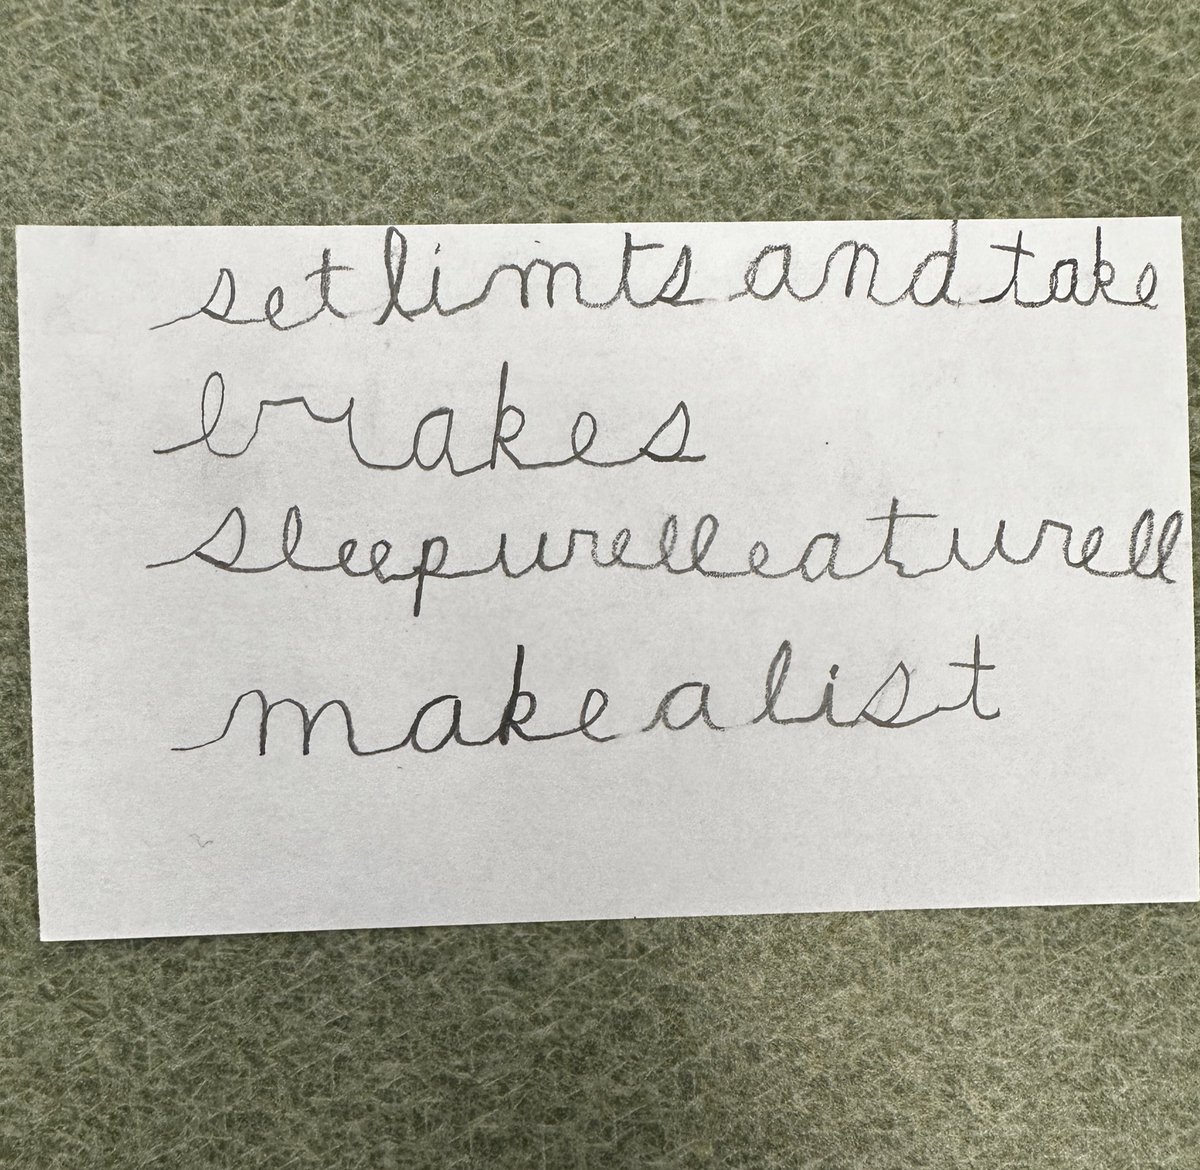 set limts and take
brakes
sleep well eat well
make a list